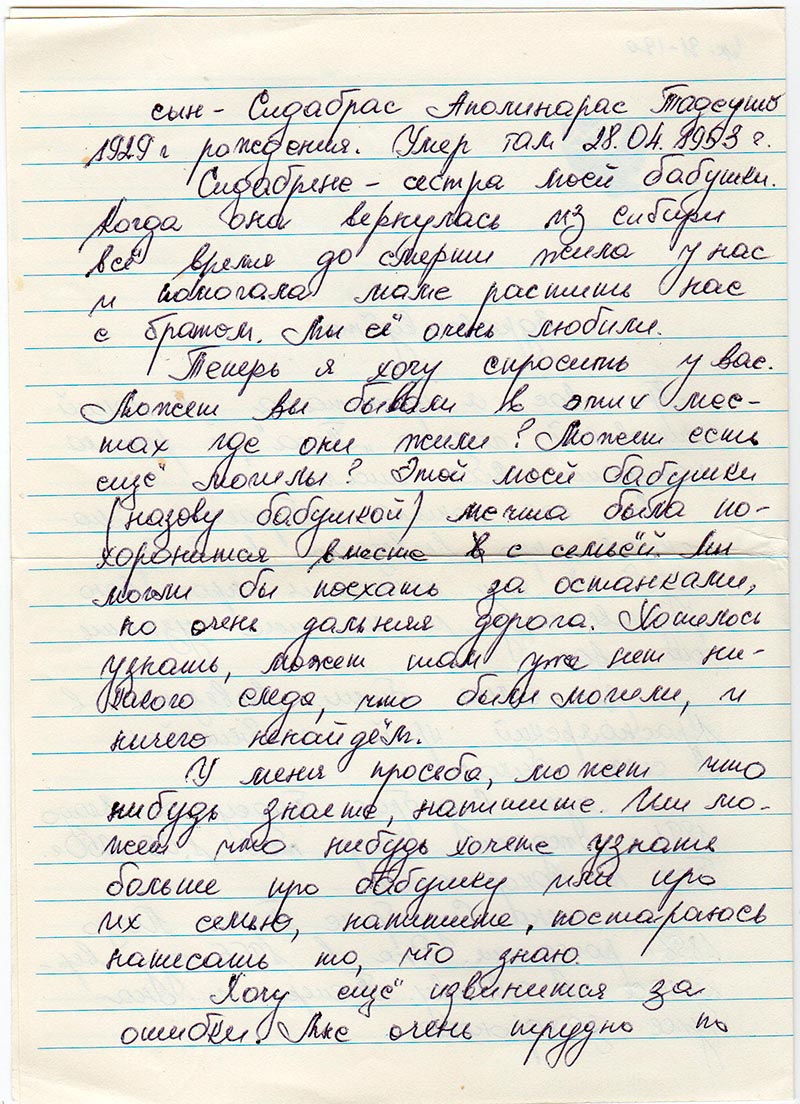 сын - Сидабрас Аполинарас Тадеушо
1929 г рождения. Умер там 28.04.1953 г.
Сидабрене - сестра моей бабушки.
Когда она вернулась из сибири
всё время до смерти жила у нас
и помогала маме растить нас
с братом. Мы её очень любили.
Теперь я хочу спросить у вас.
Может вы бывали в этих мес-
тах где они жили? Может есть
ещё могилы? Этой моей бабушки
(назову бабушкой) мечта была по-
хоронится вместе с семьёй. Мы
могли бы поехать за останками,
но очень дальняя дорога. Хотелось
узнать, может там уже нет ни-
какого следа, что были могили, и
ничего ненайдём.
У меня просьба, может что
нибудь знаете, напишите. Или мо-
жет что нибудь хочете узнать
больше про бабушку или про
их семью, напишите, постараюсь
написать то, что знаю.
Хочу ещё извинится за
ошибки. Мне очень трудно по